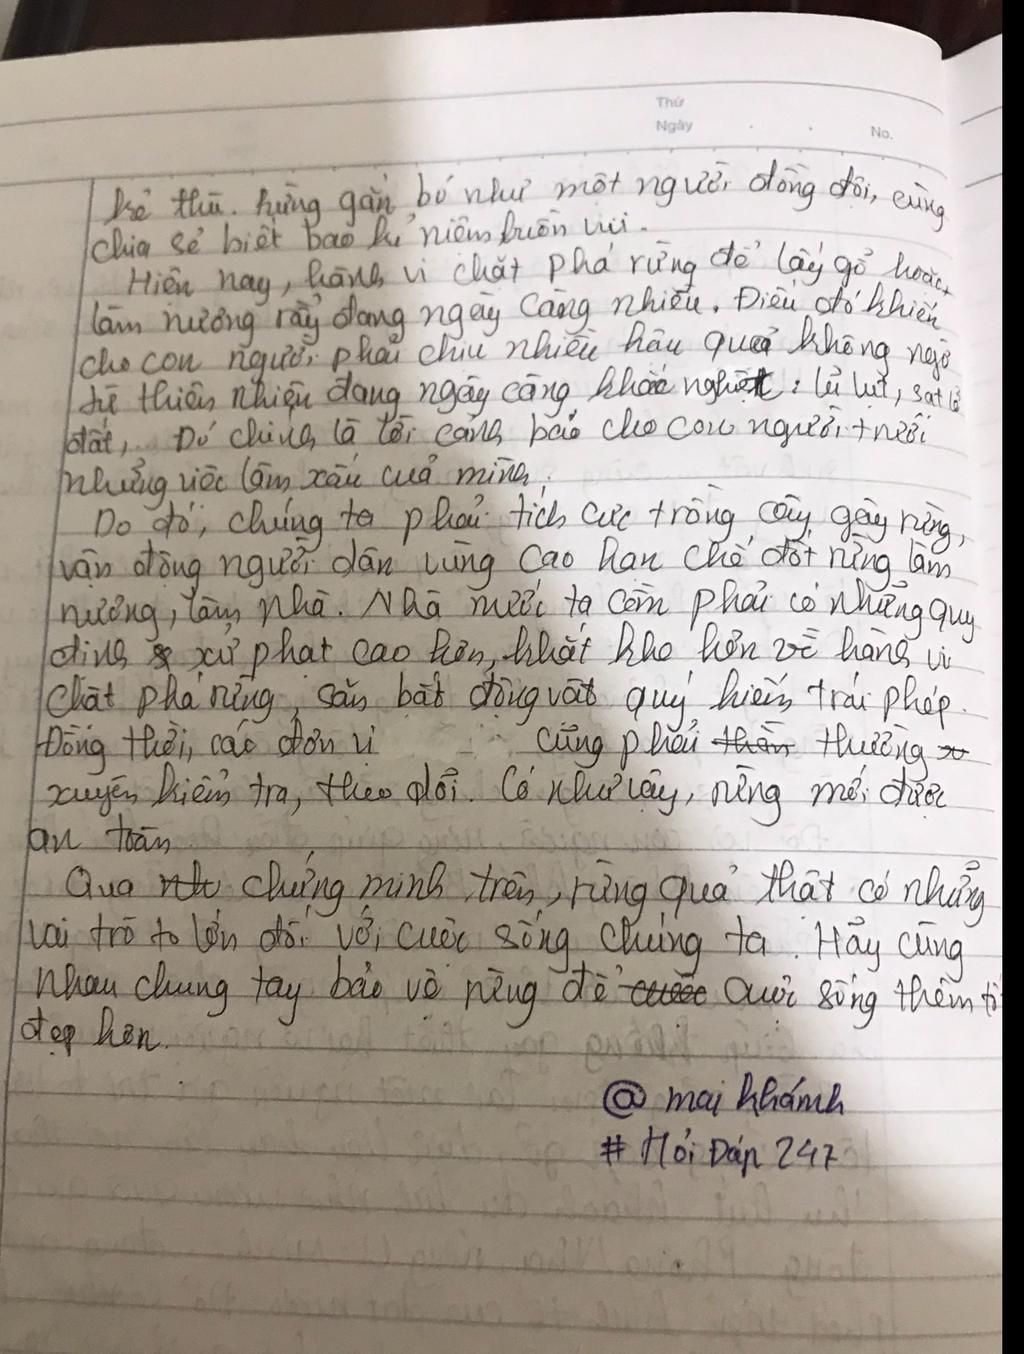 Thứ
Ngày . . No.
kẻ thù. Rừng gắn bó như một người đồng đội, cùng
chia sẻ biết bao kỉ niệm buồn vui.
Hiện nay, hành vi chặt phá rừng để lấy gỗ hoặc
làm nương rẫy đang ngày càng nhiều. Điều đó khiến
cho con người phải chịu nhiều hậu quả không ngờ
từ thiên nhiên đang ngày càng khắc nghiệt: lũ lụt, sạt lở
đất, Đó chính là lời cảnh báo cho con người trước
những việc làm xấu của mình.
Do đó, chúng ta phải tích cực trồng cây gây rừng,
vận động người dân vùng cao hạn chế đốt rừng làm
nương, làm nhà. Nhà nước ta cần phải có những quy
định xử phạt cao hơn, khắt khe hơn về hành vi
chặt phá rừng, săn bắt động vật quý hiếm trái phép.
Đồng thời, các đơn vị cũng phải thường
xuyên kiểm tra, theo dõi. Có như vậy, rừng mới được
an toàn
Qua chứng minh trên, rừng quả thật có những
vai trò to lớn đối với cuộc sống chúng ta. Hãy cùng
nhau chung tay bảo vệ rừng để cuộc sống thêm
đẹp hơn.
@ mai khánh
# Hỏi Đáp 247